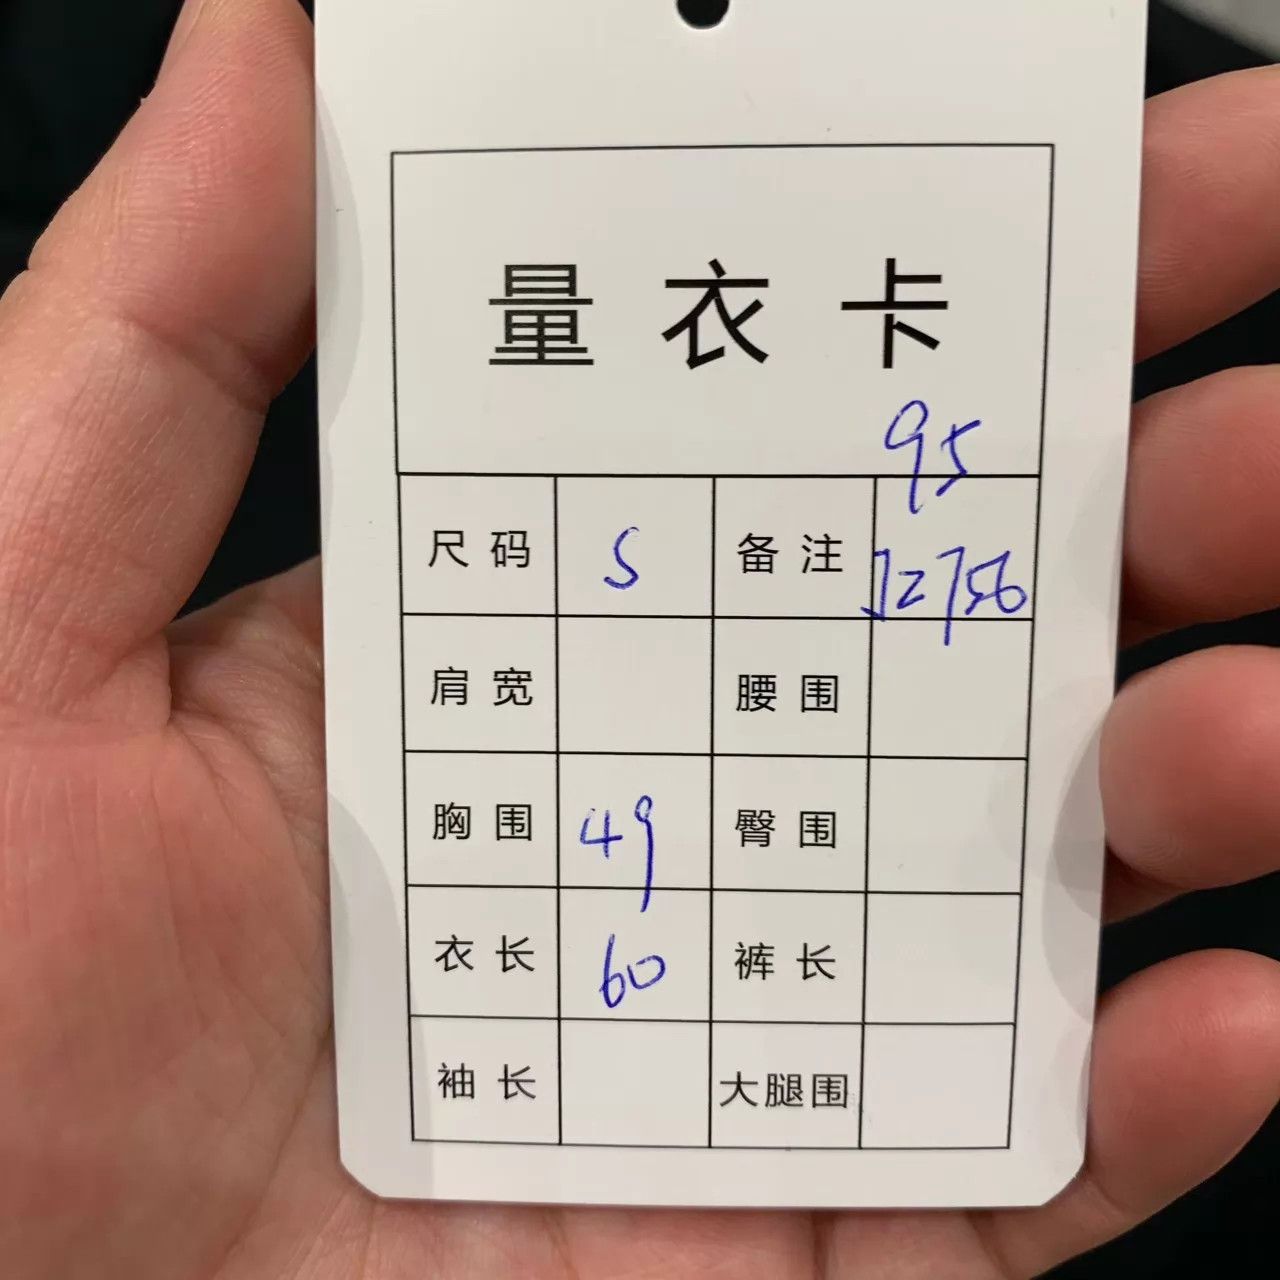 量衣卡
95
尺码 S 备注 J2756
肩宽 腰围
胸围 49 臀围
衣长 60 裤长
袖长 大腿围